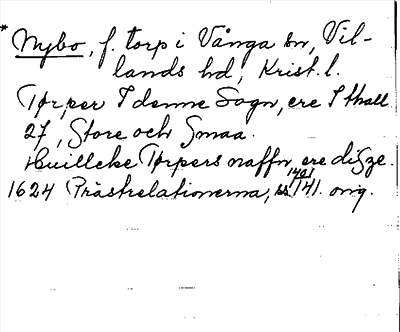 * Nybo, f. torp i Vånga sn, Vil-
lands hd, Krist. l.
Tørper I denne Sogn, ere I thall
27, Store och Smaa.
Huillcke Tørpers naffn ere disze.
1624 Prästrelationerna, 141. orig.